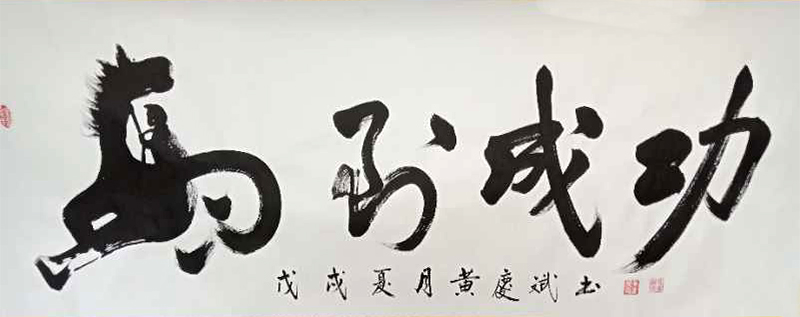 馬到成功
戊戌夏月黄慶斌书